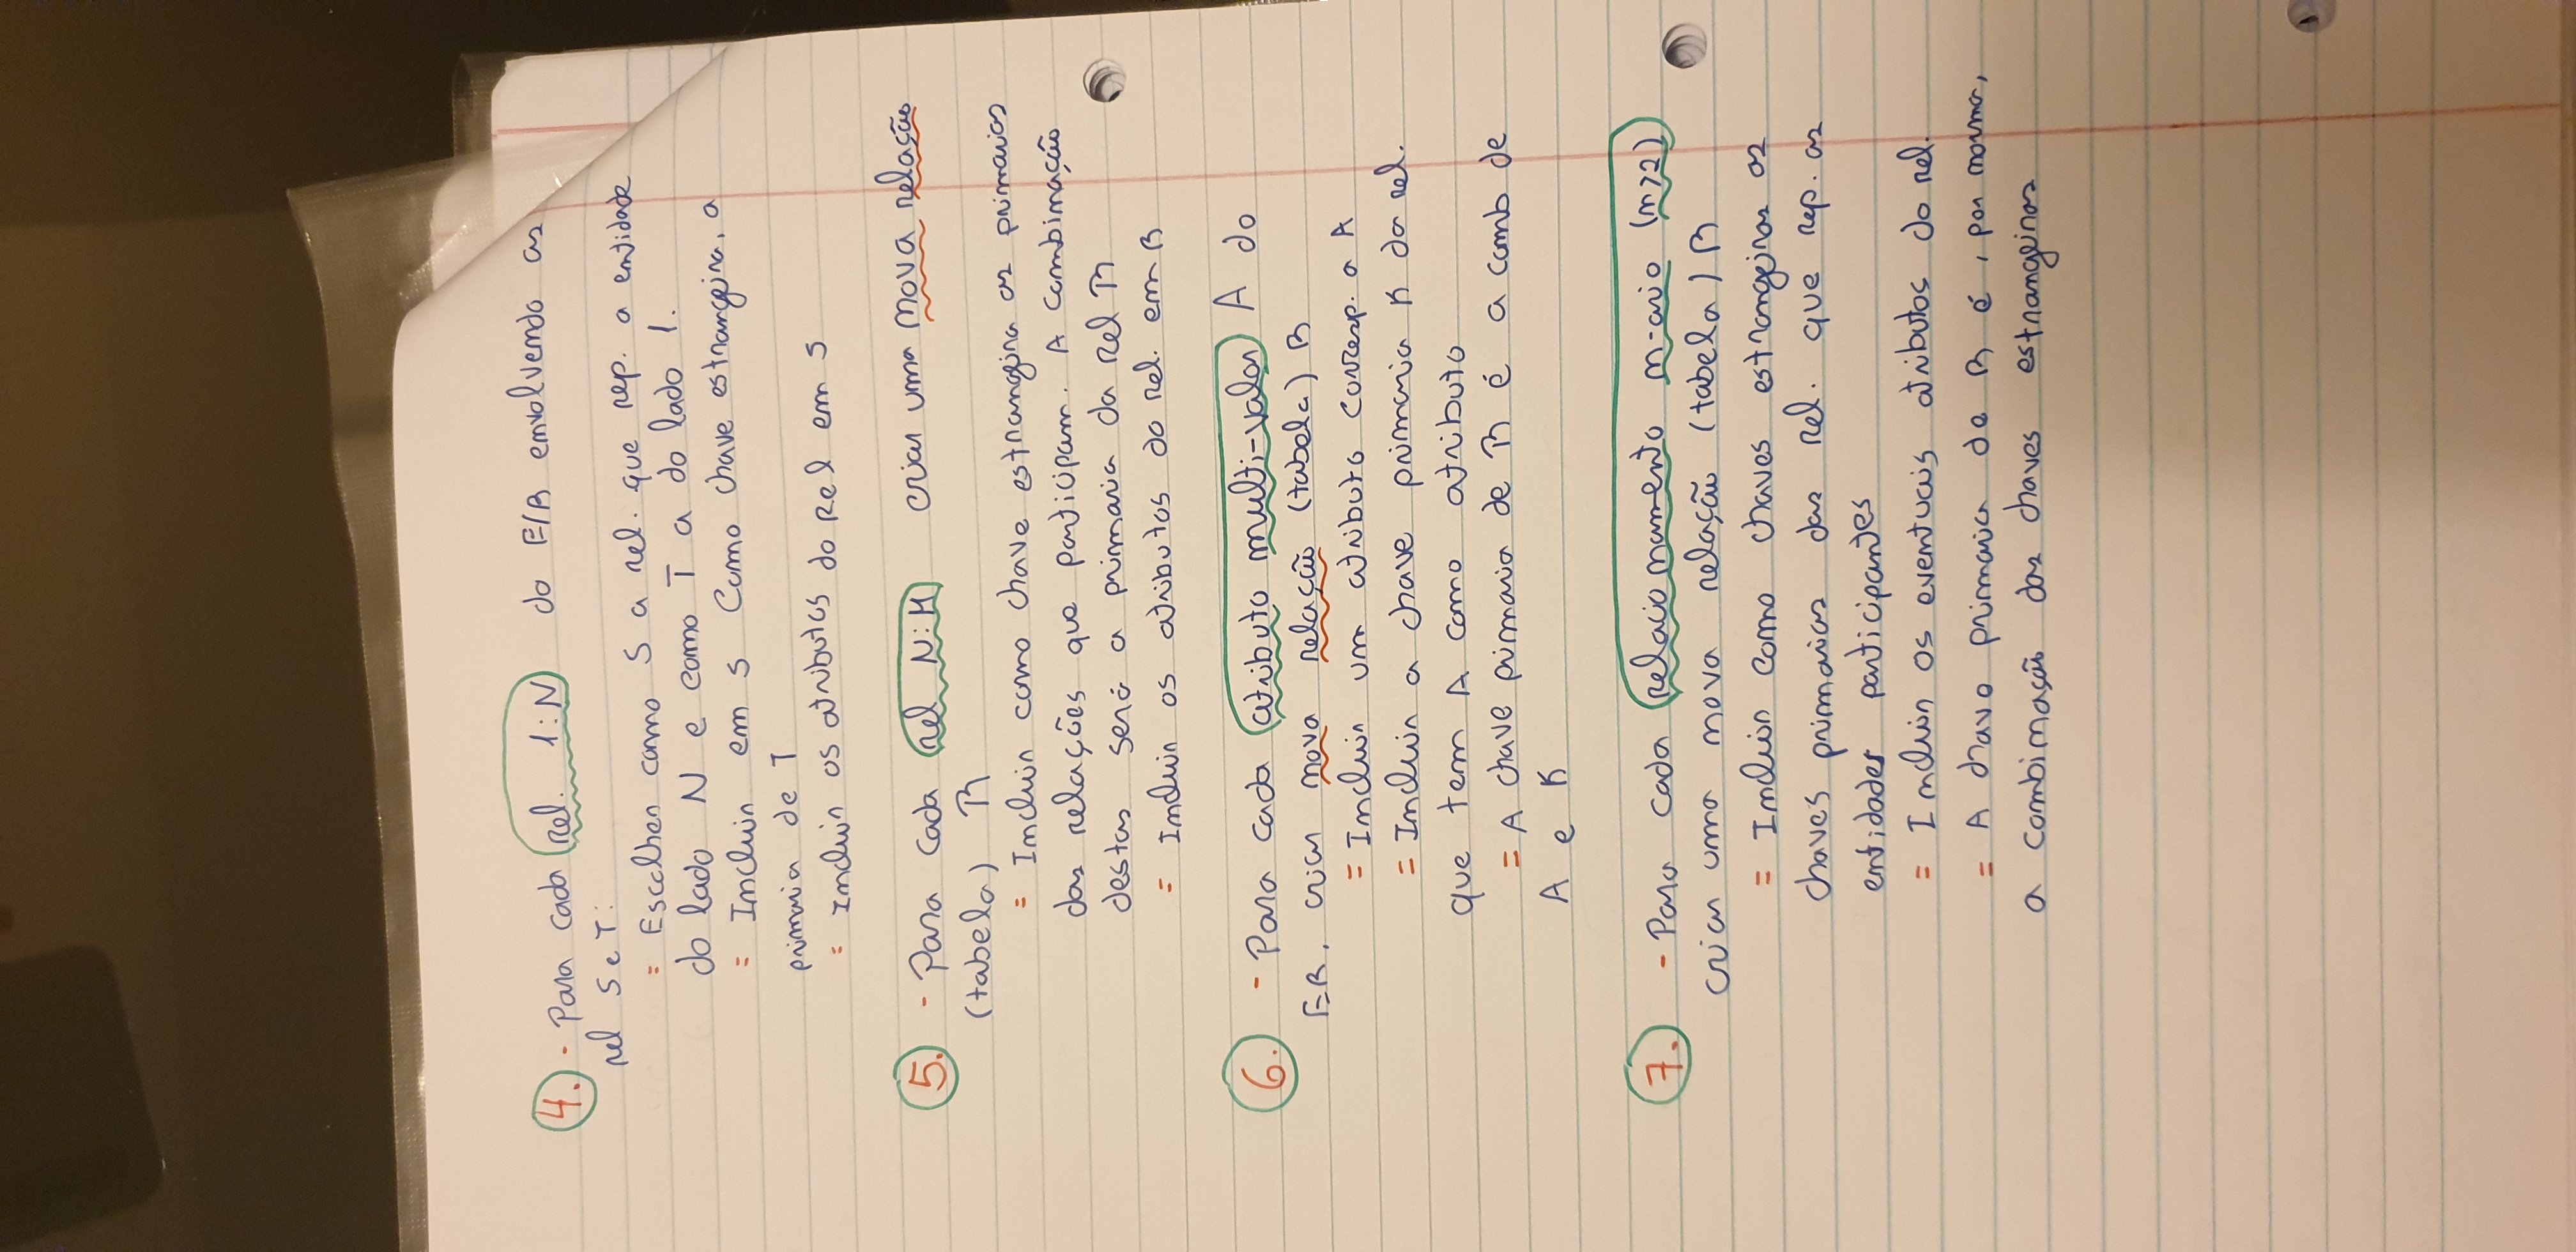 4. - Para cada rel. 1:N do E/R envolvendo as
rel S e T:
= Escolher como S a rel. que rep. a entidade
do lado N e como T a do lado 1.
= Incluir em S como chave estrangeira, a
primaria de T
= Incluir os atributos do Rel em S
5. - Para cada rel N:M criar uma nova relação
(tabela) R
= Incluir como chave estrangeira as primarias
das relações que participam. A combinação
destas será a primaria da rel R
= Incluir os atributos do rel. em R
6. - Para cada atributo multi-valor A do
ER, criar nova relação (tabela) R
= Incluir um atributo corresp. a A
= Incluir a chave primaria K da rel.
que tem A como atributo
= A chave primaria de R é a comb de
A e K
7. - Para cada relacionamento n-ario (n>2)
criar uma nova relação (tabela) R
= Incluir como chaves estrangeiras as
chaves primarias das rel. que rep. as
entidades participantes
= Incluir os eventuais atributos do rel.
= A chave primaria de R é, por norma,
a combinação das chaves estrangeiras